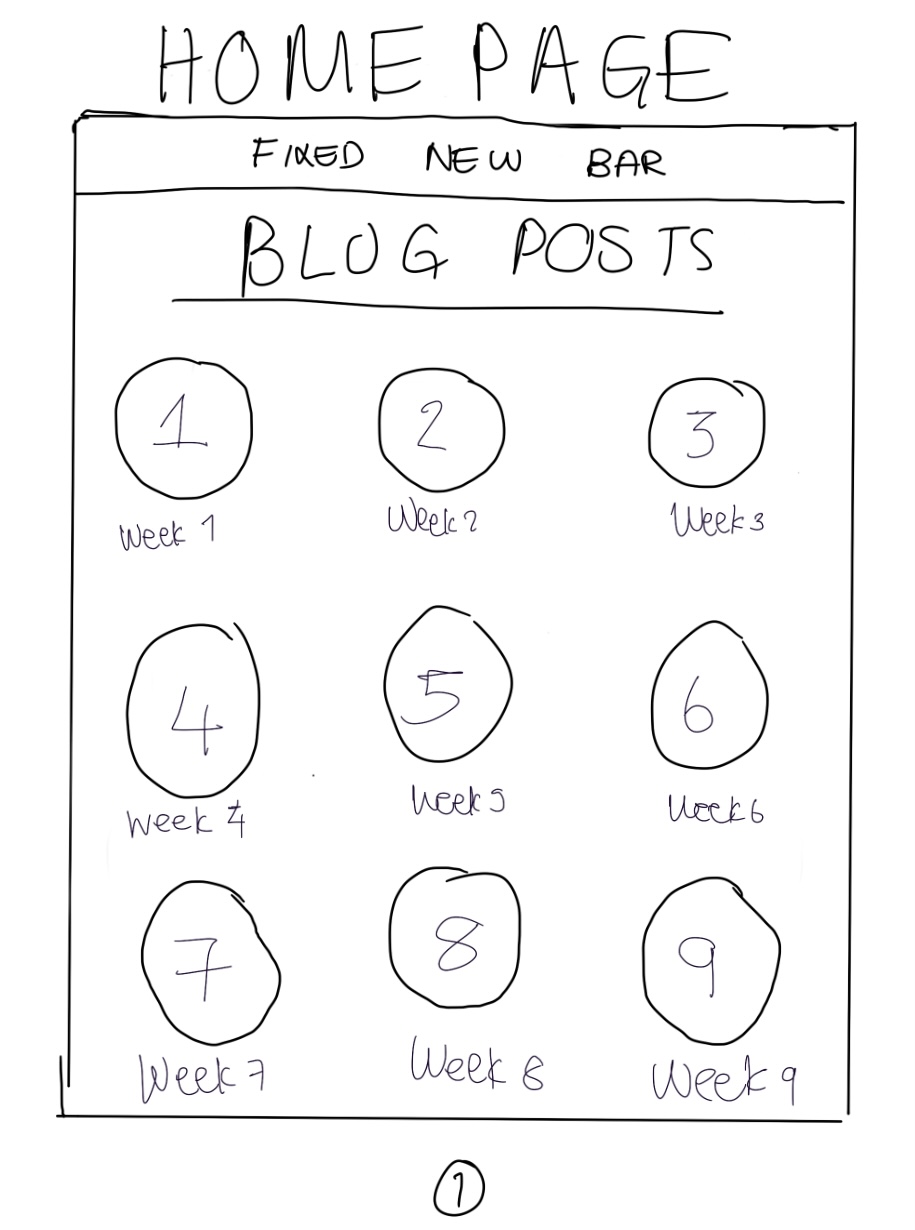 HOME PAGE
FIXED NEW BAR
BLOG POSTS
1 2 3
Week 1 Week 2 Week 3
4 5 6
Week 4 Week 5 Week 6
7 8 9
Week 7 Week 8 Week 9
1